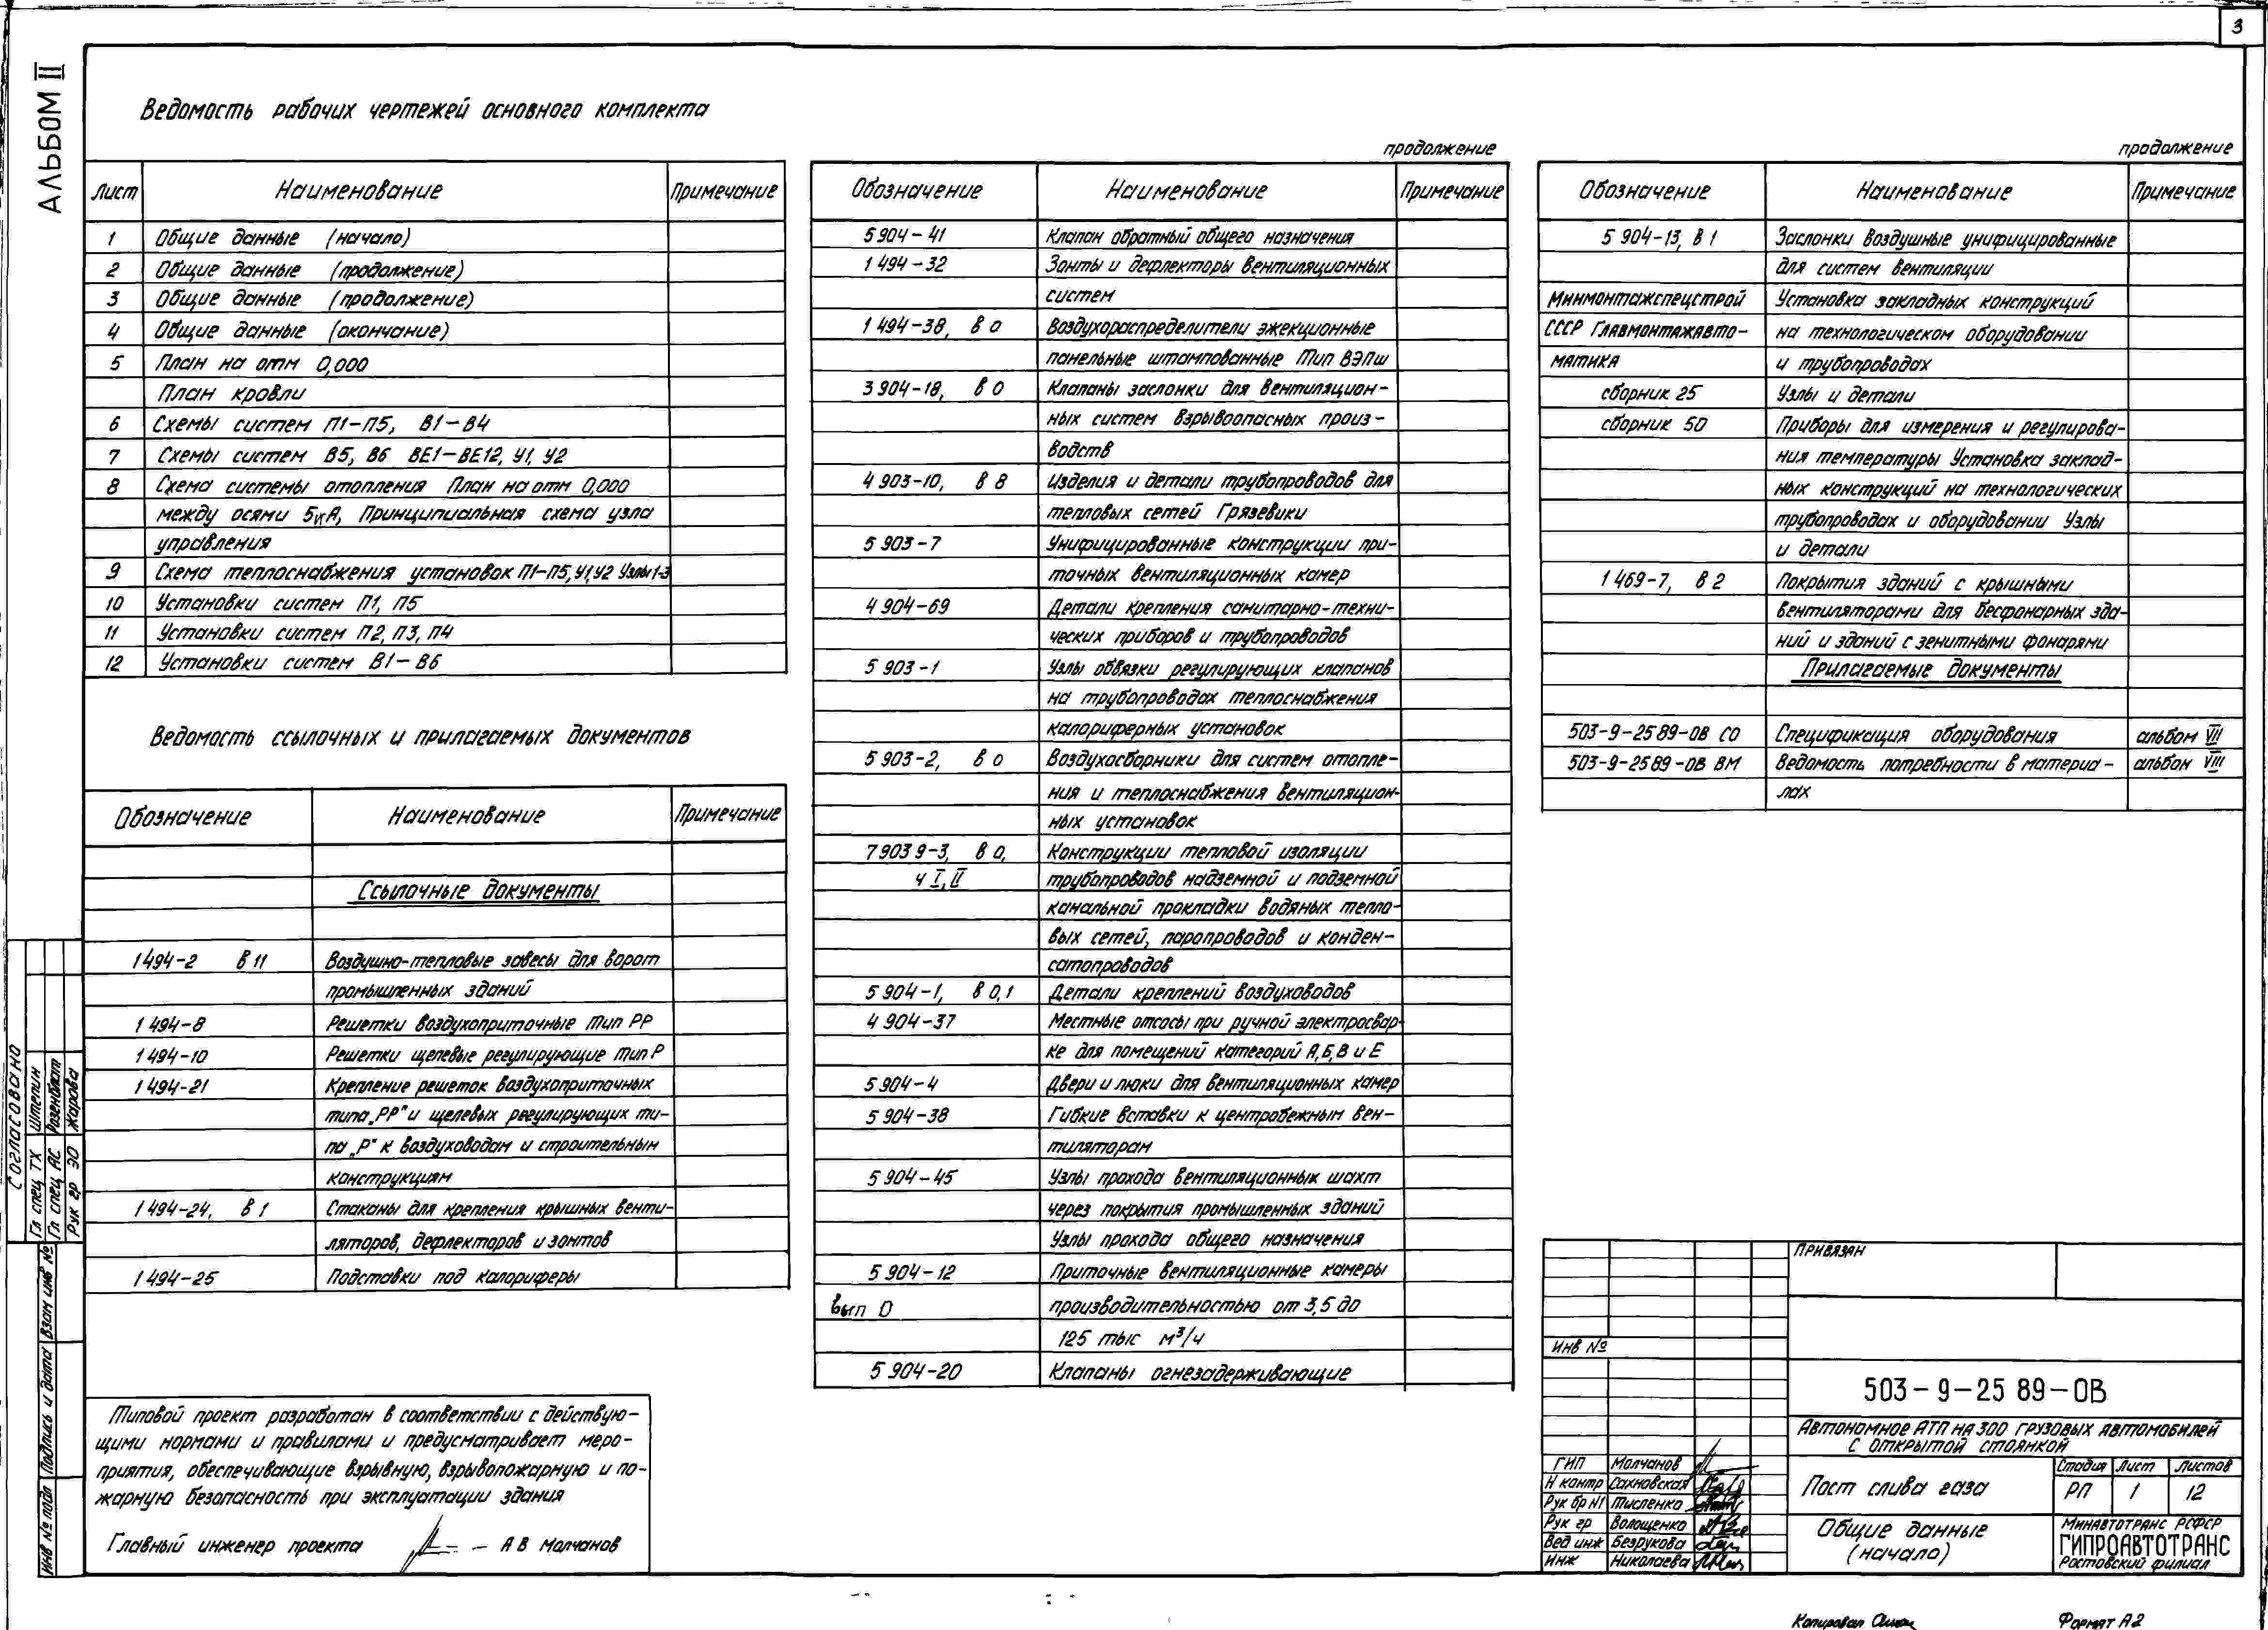 3
АЛЬБОМ II
Ведомость рабочих чертежей основного комплекта
Лист Наименование Примечание
1 Общие данные (начало)
2 Общие данные (продолжение)
3 Общие данные (продолжение)
4 Общие данные (окончание)
5 План на отм 0,000
План кровли
6 Схемы систем П1-П5, В1-В4
7 Схемы систем В5, В6 ВЕ1-ВЕ12, У1, У2
8 Схема системы отопления План на отм 0,000
между осями 5иА, Принципиальная схема узла
управления
9 Схема теплоснабжения установок П1-П5, У1, У2 Узлы 1-3
10 Установки систем П1, П5
11 Установки систем П2, П3, П4
12 Установки систем В1-В6
Ведомость ссылочных и прилагаемых документов
Обозначение Наименование Примечание
Ссылочные документы
1 494-2 в 11 Воздушно-тепловые завесы для ворот
промышленных зданий
1 494-8 Решетки воздухоприточные тип РР
1 494-10 Решетки щелевые регулирующие тип Р
1 494-21 Крепление решеток воздухоприточных
типа „РР" и щелевых регулирующих ти-
па „Р" к воздуховодам и строительным
конструкциям
1 494-24, в 1 Стаканы для крепления крышных венти-
ляторов, дефлекторов и зонтов
1 494-25 Подставки под калориферы
Типовой проект разработан в соответствии с действую-
щими нормами и правилами и предусматривает меро-
приятия, обеспечивающие взрывную, взрывопожарную и по-
жарную безопасность при эксплуатации здания
Главный инженер проекта А В Молчанов
продолжение
Обозначение Наименование Примечание
5 904-41 Клапан обратный общего назначения
1 494-32 Зонты и дефлекторы вентиляционных
систем
1 494-38, в 0 Воздухораспределители эжекционные
панельные штампованные тип ВЭПш
3 904-18, в 0 Клапаны заслонки для вентиляцион-
ных систем взрывоопасных произ-
водств
4 903-10, в 8 Изделия и детали трубопроводов для
тепловых сетей Грязевики
5 903-7 Унифицированные конструкции при-
точных вентиляционных камер
4 904-69 Детали крепления санитарно-техни-
ческих приборов и трубопроводов
5 903-1 Узлы обвязки регулирующих клапанов
на трубопроводах теплоснабжения
калориферных установок
5 903-2, в 0 Воздухосборники для систем отопле-
ния и теплоснабжения вентиляцион-
ных установок
7 903 9-3, в 0, Конструкции тепловой изоляции
ч I, II трубопроводов надземной и подземной
канальной прокладки водяных тепло-
вых сетей, паропроводов и конден-
сатопроводов
5 904-1, в 0,1 Детали креплений воздуховодов
4 904-37 Местные отсосы при ручной электросвар-
ке для помещений категорий А, Б, В и Е
5 904-4 Двери и люки для вентиляционных камер
5 904-38 Гибкие вставки к центробежным вен-
тиляторам
5 904-45 Узлы прохода вентиляционных шахт
через покрытия промышленных зданий
Узлы прохода общего назначения
5 904-12 Приточные вентиляционные камеры
вып 0 производительностью от 3,5 до
125 тыс м³/ч
5 904-20 Клапаны огнезадерживающие
продолжение
Обозначение Наименование Примечание
5 904-13, в 1 Заслонки воздушные унифицированные
для систем вентиляции
Минмонтажспецстрой Установка закладных конструкций
СССР Главмонтажавто- на технологическом оборудовании
матика и трубопроводах
сборник 25 Узлы и детали
сборник 50 Приборы для измерения и регулирова-
ния температуры Установка заклад-
ных конструкций на технологических
трубопроводах и оборудовании Узлы
и детали
1 469-7, в 2 Покрытия зданий с крышными
вентиляторами для бесфонарных зда-
ний и зданий с зенитными фонарями
Прилагаемые документы
503-9-25 89-ОВ СО Спецификация оборудования альбом VIII
503-9-25 89-ОВ ВМ Ведомость потребности в материа- альбом VIII
лах
Привязан
Инв №
503-9-25 89-ОВ
Автономное АТП на 300 грузовых автомобилей
с открытой стоянкой
ГИП Молчанов
Н контр Сахновская
Рук бр №1 Тысленко
Рук гр Волощенко
Вед инж Безрукова
Инж Николаева
Пост слива газа
Стадия Лист Листов
РП 1 12
Общие данные
(начало)
Минавтотранс РСФСР
ГИПРОАВТОТРАНС
Ростовский филиал
Копировал
Формат А2
Согласовано
Гл спец ТХ Штепин
Гл спец АС Розенблат
Рук гр ЭО Жарова
Взам инв №
Подпись и дата
Инв № подл